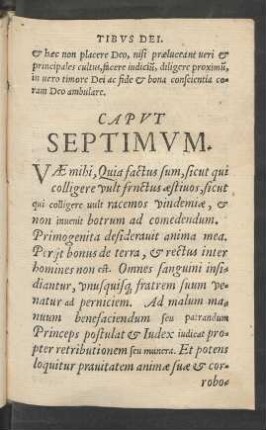 TIBVS DEI.
& hæc non placere Deo, nisi præluceant ueri &
principales cultus, facere iudiciũ, diligere proximũ,
in uero timore Dei ac fide & bona conscientia co-
ram Deo ambulare.
CAPVT
SEPTIMVM.
VÆ mihi, Quia factus sum, sicut qui
colligere vult fructus æstiuos, sicut
qui colligere uult racemos vindemiæ, &
non inuenit botrum ad comedendum.
Primogenita desiderauit anima mea.
Perijt bonus de terra, & rectus inter
homines non est. Omnes sanguini insi-
diantur, vnusquisq; fratrem suum ve-
natur ad perniciem. Ad malum ma-
nuum benefaciendum seu patrandum
Princeps postulat & Iudex iudicat pro-
pter retributionem seu munera. Et potens
loquitur prauitatem animæ suæ & cor-
robo-